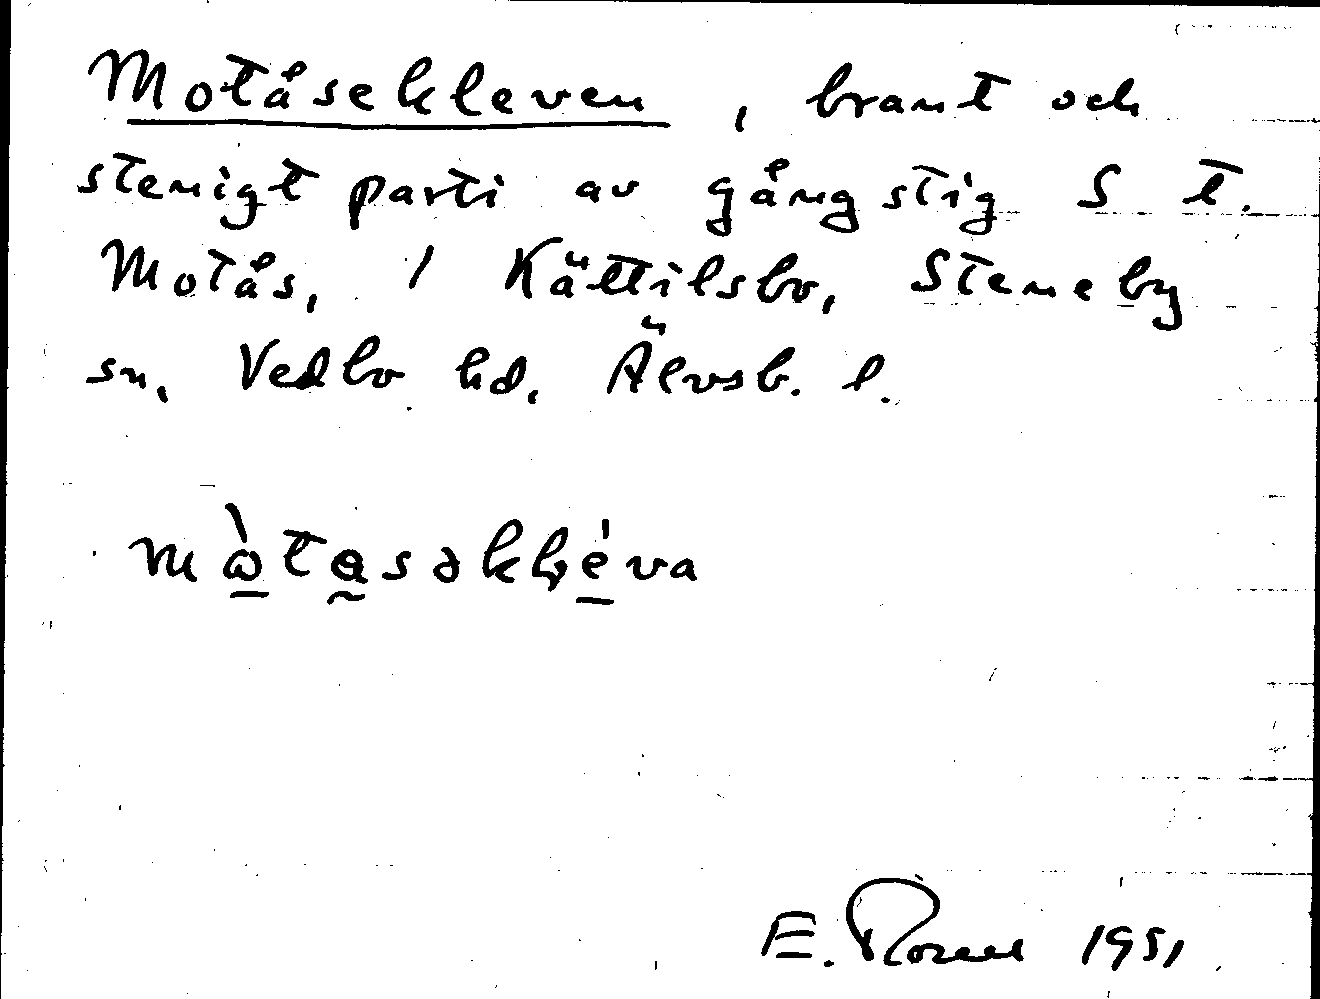 Motåsekleven, brant och
stenigt parti av gångstig S t.
Motås, 1 Kättilsbo, Steneby
sn, Vedbo hd, Älvsb. l.
E. 1951